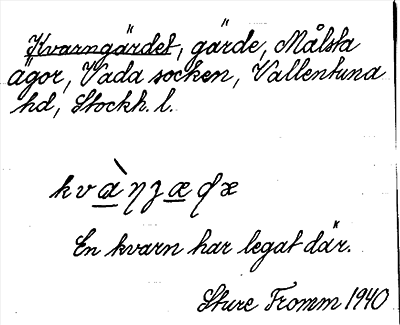 Kvarngärdet, gärde, Målsta
ägor, Vada socken, Vallentuna
hd, Stockh. l.
kvàŋȷæɖæ
En kvarn har legat där.
Sture Fromm 1940